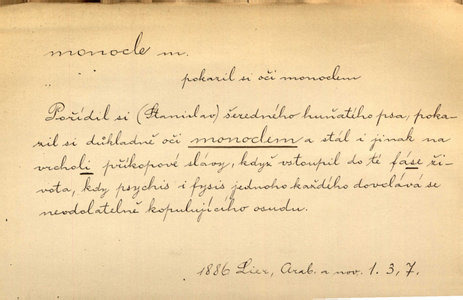 monocle m.
pokazil si oči monoclem
Pořídil si (Stanislav) šeredného huňatého psa, poka-
zil si důkladně oči monoclem a stál i jinak na
vrcholi příkopové slávy, když vstoupil do té fase ži-
vota, kdy psychis i fysis jednoho každého dovolává se
neodolatelně kopulujícího osudu.
1886 Lier, Arab. a nov. 1. 3, 7.